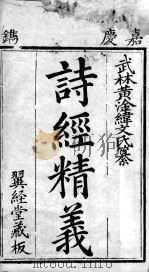 嘉慶 鐫
武林黃淦緯文氏纂
詩經精義
翼經堂藏板